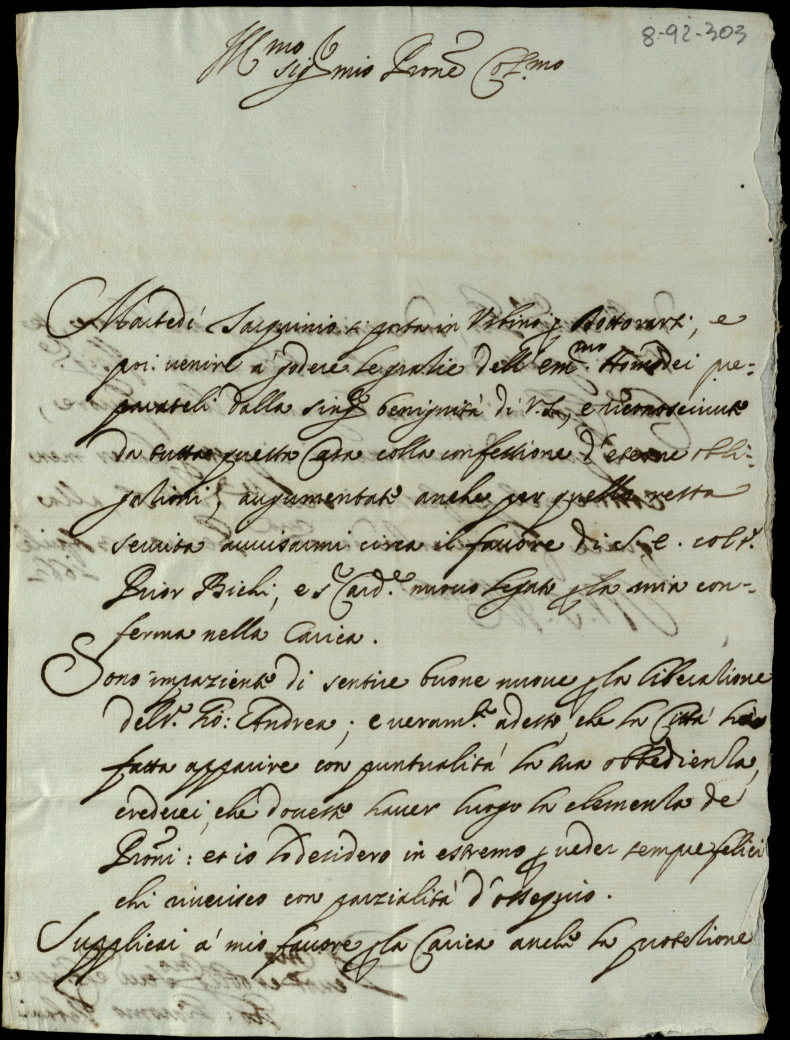 8-92-303
Ill.mo Sig.r mio Pron̄e Col.mo
Martedì Sarguinio si porta in Urbino p Dottorarsi, e
poi venire a' godere le gratie dell' em.mo Homodei pre=
parateli dalla sing.e benignità di V.S., e riconosciute
da tutta questa Casa colla confessione d'eterne obli=
gationi, augumentate anche per quello resta
servita avvisarmi circa il favore di S. e. col S.r
Prior Bichi, e S.r Card.e nuovo legato p la mia con=
ferma nella Carica.
Sono impaziente di sentire buone nuove p la liberatione
del S.r Gio: Andrea; e veram.te adesso, che la Città ha
fatta apparire con puntualità la sua obbedienza,
crederei, che dovesse haver luogo la clemenza de'
Pron̄i: et io lo desidero in estremo p veder sempre felici
chi riverisco con parzialità d'ossequio.
Supplicai a' mio favore p la Carica anche la protetione